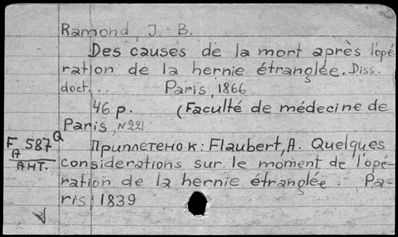 Ramond, J.-B.
Des causes de la mort après l'opé-
ration de la hernie étranglée. Diss.
doct... Paris, 1866
46 p. (Faculté de médecine de
Paris, N22)
FA 587Q
АНТ.
Приплетено к: Flaubert, A. Quelques
considerations sur le moment de l'opé-
ration de la hernie étranglée. Pa-
ris 1839